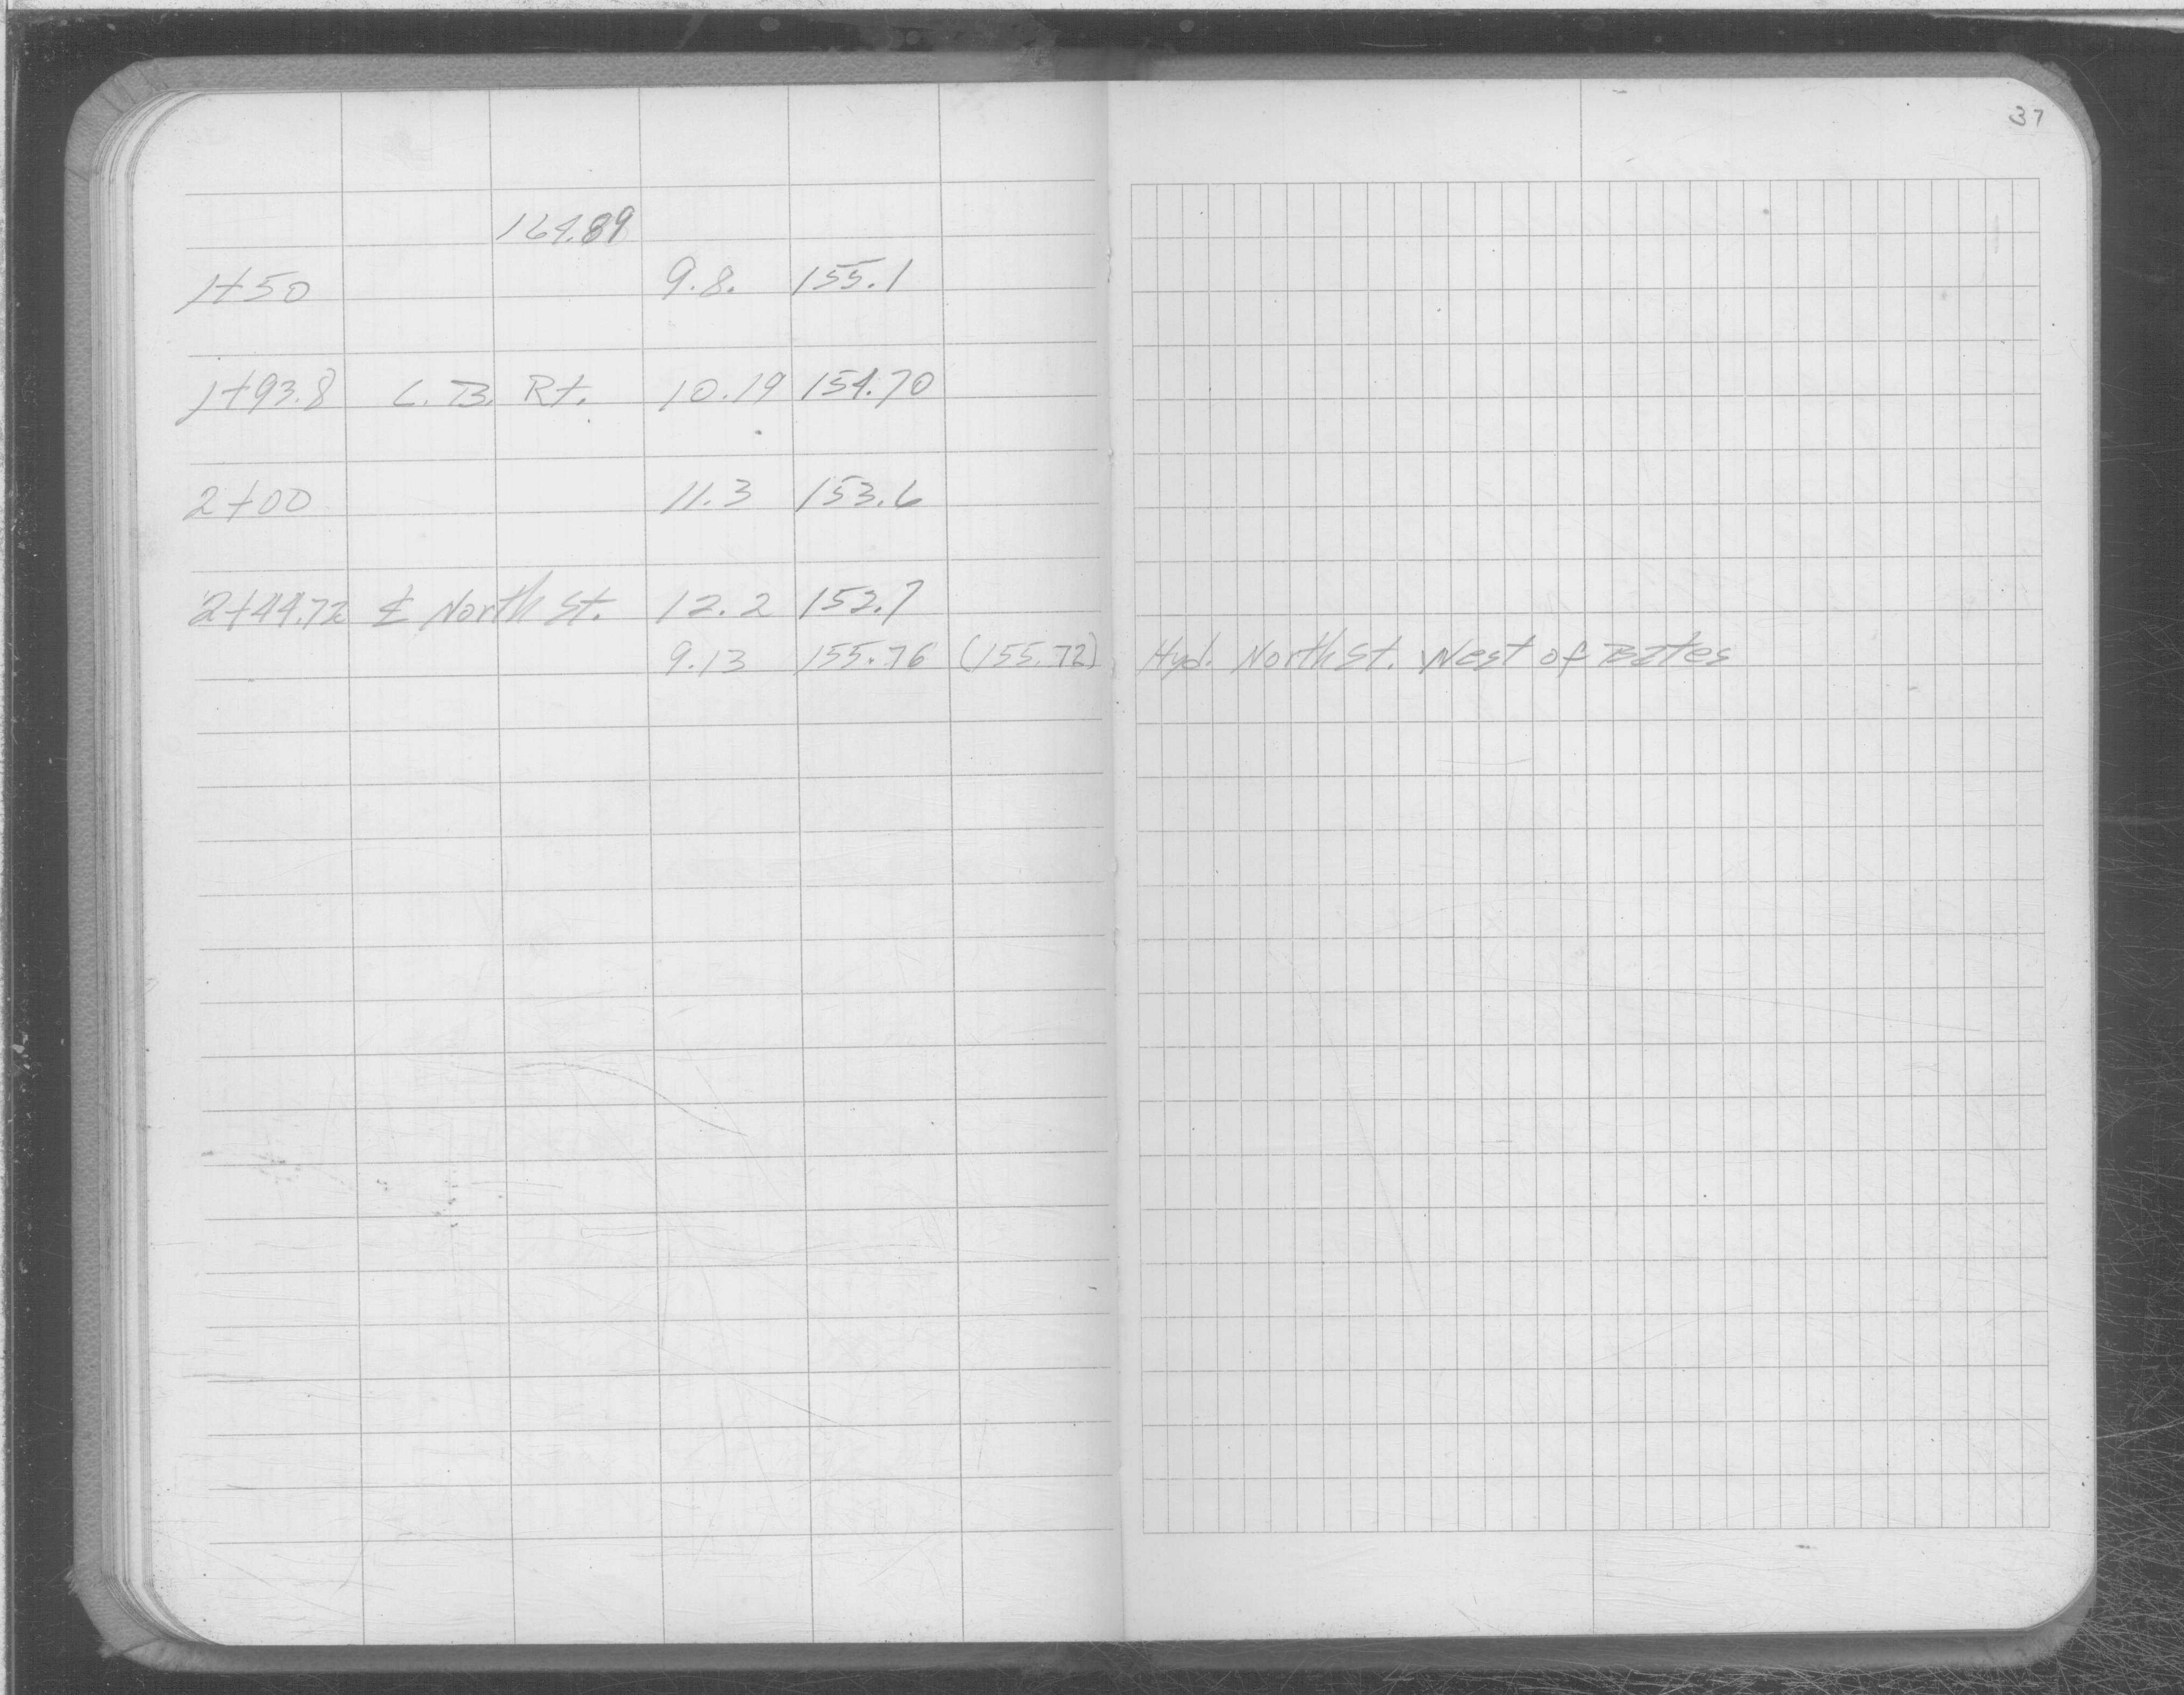 37
164.89
1+50 9.8. 155.1
1+93.8 C.B. Rt. 10.19 154.70
2+00 11.3 153.6
2+44.72 ℄ North St. 12.2 152.7
9.13 155.76 (155.72) Hyd. North St. West of Bates